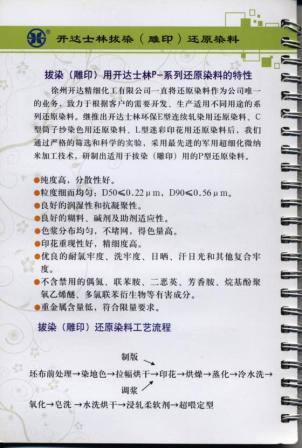 开达士林拔染（雕印）还原染料
拔染（雕印）用开达士林P-系列还原染料的特性
徐州开达精细化工有限公司一直将还原染料作为公司唯一
的业务，致力于根据客户的需要开发、生产适用不同用途的系
列还原染料。继推出开达士林环保E型连续轧染用还原染料、C
型筒子纱染色用还原染料、L型迷彩印花用还原染料后，我们
通过严格的筛选和科学的实验，采用最先进的军用超细化微纳
米加工技术，研制出适用于拔染（雕印）用的P型还原染料。
●纯度高，分散性好。
●粒度细而均匀：D50≤0.22μm，D90≤0.56μm。
●良好的润湿性和抗凝聚性。
●良好的糊料、碱剂及助剂适应性。
●色浆分布均匀，不堵网，得色量高。
●印花重现性好，精细度高。
●优良的耐氯牢度、洗牢度、日晒、汗日光和其他复合牢
度。
●不含禁用的偶氮、联苯胺、二恶英、芳香胺、烷基酚聚
氧乙烯醚、多氯联苯衍生物等有害成分。
●重金属含量低，符合限量要求。
拔染（雕印）还原染料工艺流程
制版
坯布前处理→染地色→拉幅烘干→印花→烘燥→蒸化→冷水洗→
调浆
氧化→皂洗→水洗烘干→浸轧柔软剂→超喂定型